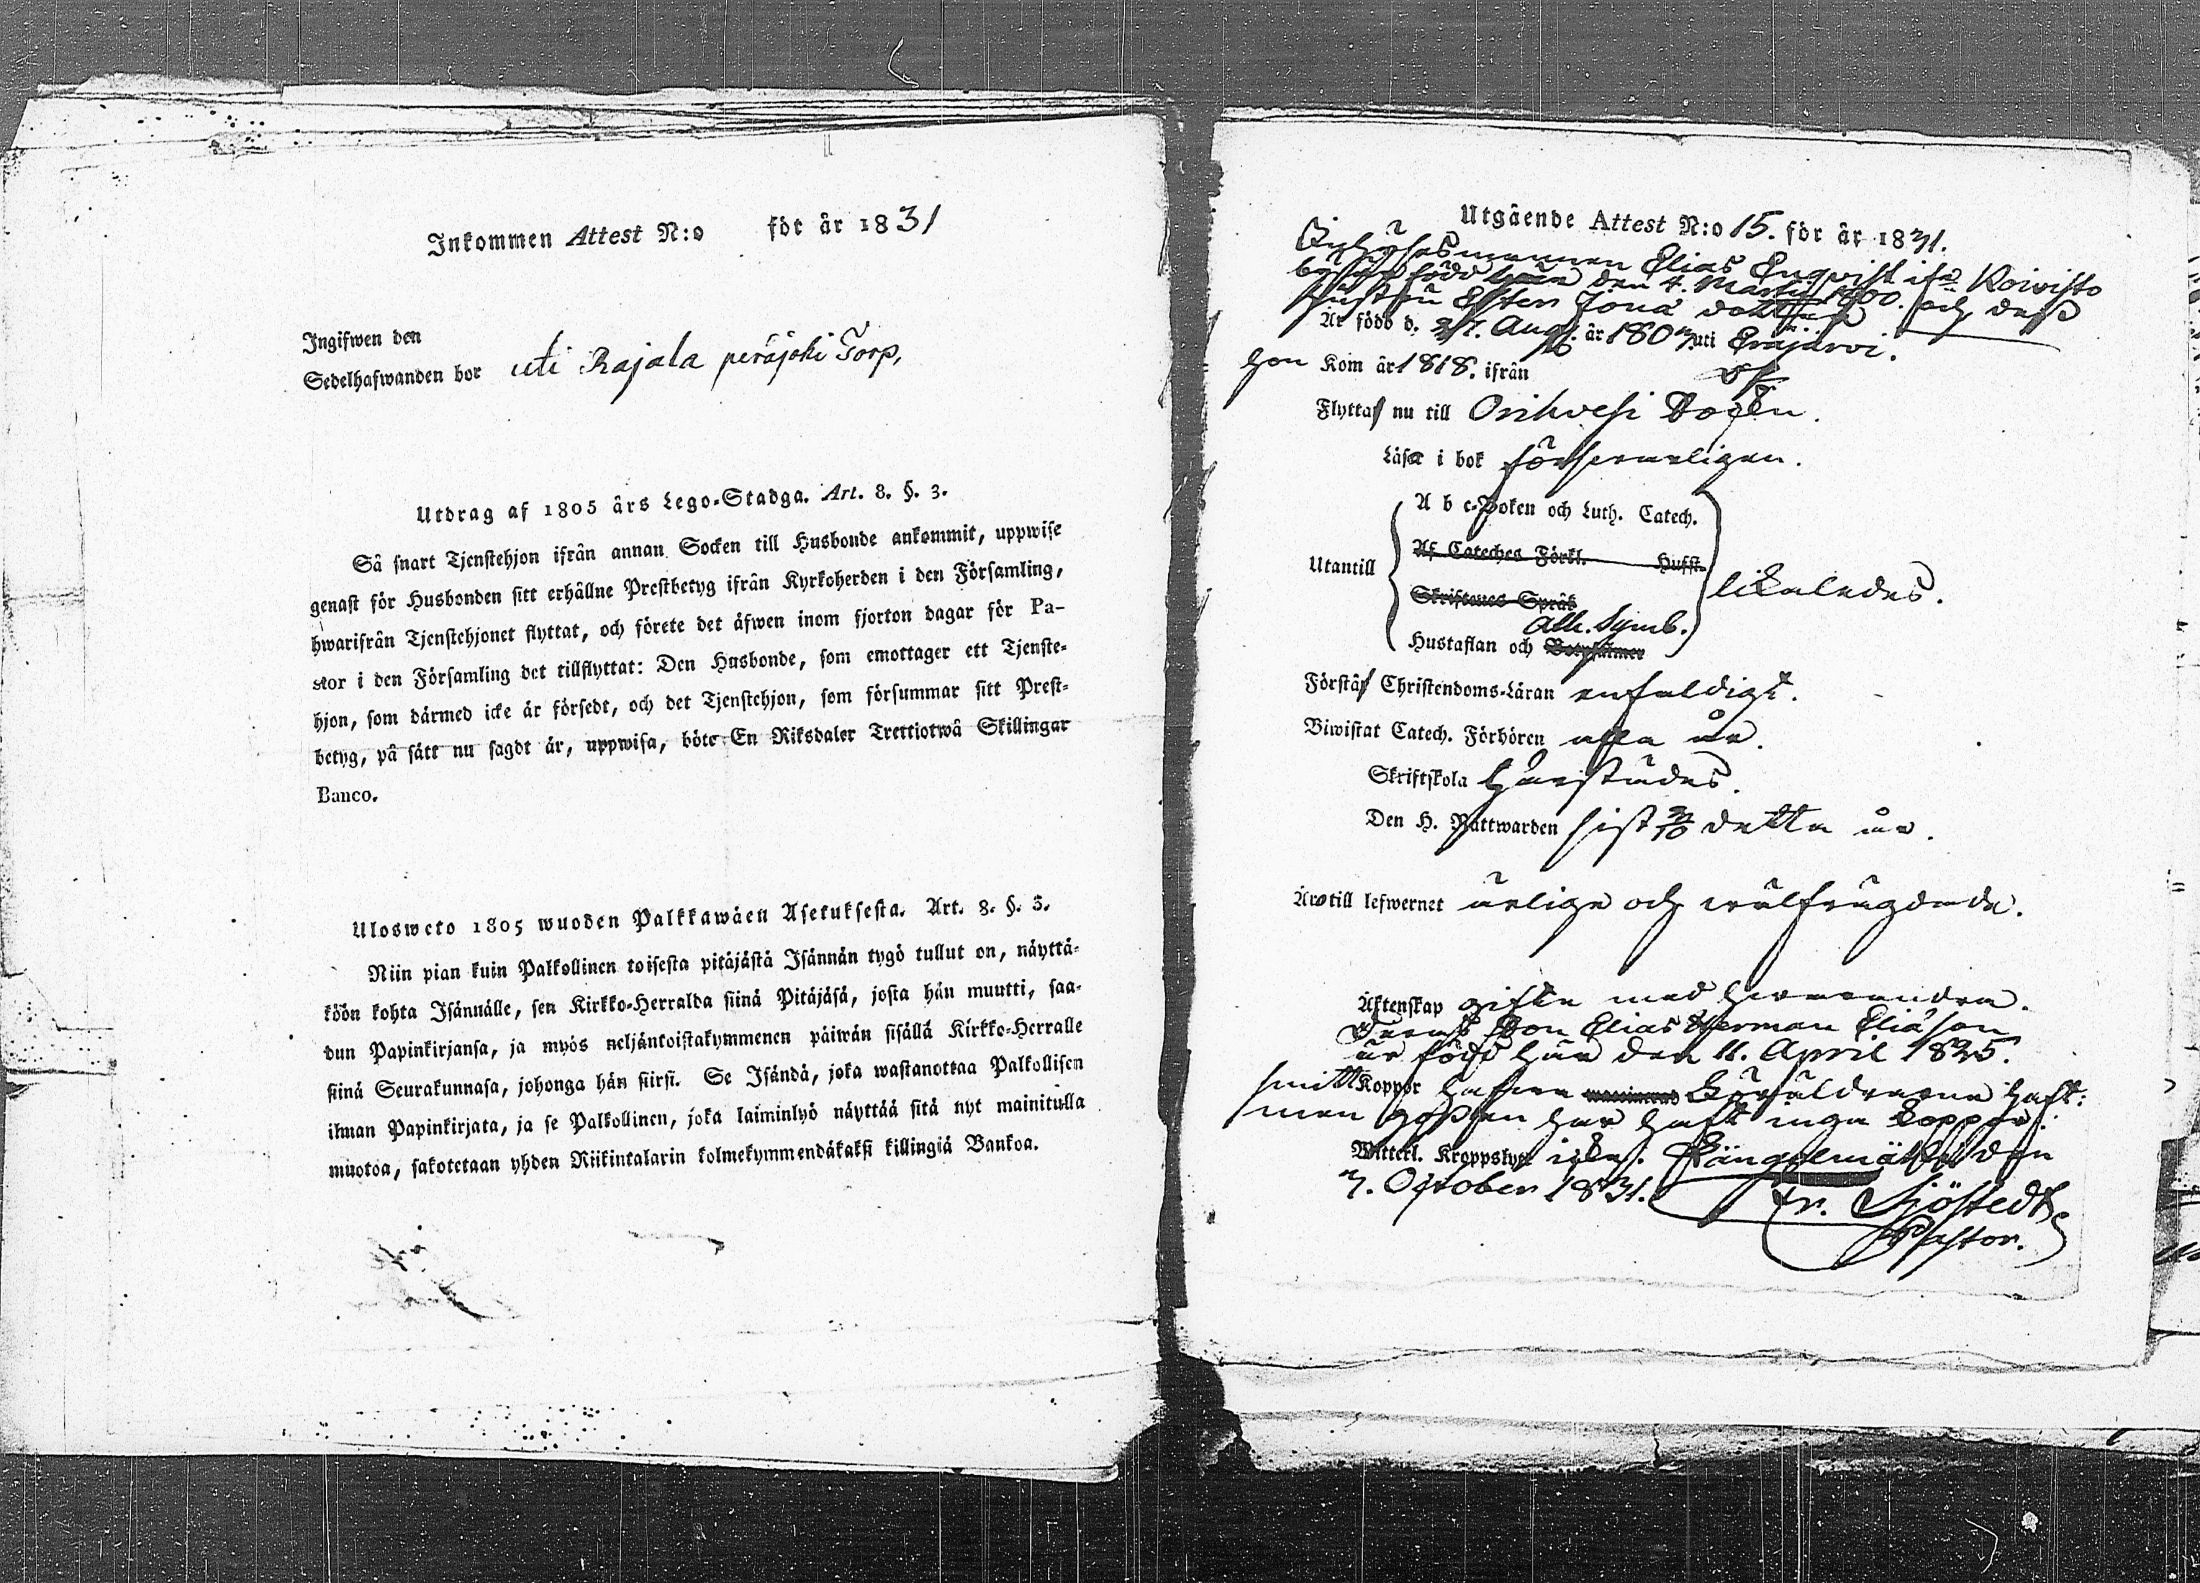 Inkommen Attest N:o för år 1831
Ingifwen den
Sedelhafwanden bor uti Rajala peräjoki Torp,
Utdrag af 1805 års Lego-Stadga. Art. 8. §. 3.
Så snart Tjenstehjon ifrån annan Socken till Husbonde ankommit, uppwise
genast för Husbonden sitt erhållne Prestbetyg ifrån Kyrkoherden i den Församling,
hwarifrån Tjenstehjonet flyttat, och förete det äfwen inom fjorton dagar för Pa-
stor i den Församling det tillflyttat: Den Husbonde, som emottager ett Tjenste-
hjon, som därmed icke är försedt, och det Tjenstehjon, som försummar sitt Prest-
betyg, på sätt nu sagdt är, uppwisa, böte En Riksdaler Trettiotwå Skillingar
Banco.
Ulosweto 1805 wuoden Palkkawäen Asetuksesta. Art. 8. §. 3.
Niin pian kuin Palkollinen toisesta pitäjästä Isännän tygö tullut on, näyttä-
köön kohta Isännälle, sen Kirkko-Herralda siinä Pitäjäsä, josta hän muutti, saa-
dun Papinkirjansa, ja myös neljäntoistakymmenen päiwän sisällä Kirkko-Herralle
siinä Seurakunnasa, johonga hän siirsi. Se Isändä, joka wastanottaa Palkollisen
ilman Papinkirjata, ja se Palkollinen, joka laiminlyö näyttää sitä nyt mainitulla
muotoa, sakotetaan yhden Riikintalarin kolmekymmendäkaksi killingiä Bankoa.
Utgående Attest N:o 15. för år 1831.
Elias Enqvist ifrån Koivisto
by är född här den 4. Martii 1800. och dess
hustru Ester Jona dotter
Är född d. 27. Aug. år 1803 uti Eräjärvi.
hon Kom år 1818. ifrån
Flyttas nu till Orihvesi Socken.
Läsa i bok försvarligen.
A b c-Boken och Luth. Catech.
Af Cateches Förkl. Hufst.
Utantill
likaledes.
Skriftenes Språk
Ath. Symb.
Hustaflan och Botpsalmer
Förstå Christendoms-Läran enfaldigt.
Biwistat Catech. Förhören alla år.
Skriftskola härstädes.
Den H. Nattwarden sist 2/10 detta år.
Äro till lefwernet ärliga och välfrägdade.
Äktenskap gifta med hvarandra.
Deras Son Elias Herman Eliasson
är född här den 11. April 1825.
Koppor hafva föräldrarna haft:
men gossen har haft inga koppor.
Witterl. Kroppslyte icke. Längelmäki den
7. October 1831. Fr. Sjöstedt
Pastor.